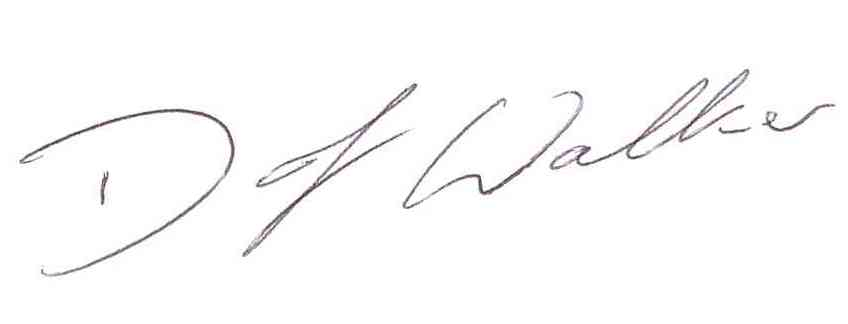 D J Walker